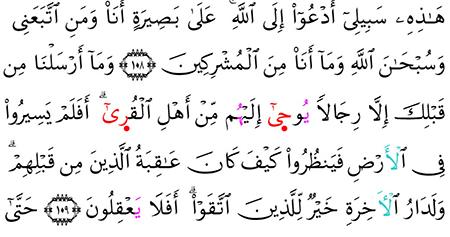 هَـٰذِهِۦ سَبِيلِىٓ أَدْعُوٓا۟ إِلَى ٱللَّهِ ۚ عَلَىٰ بَصِيرَةٍ أَنَا۠ وَمَنِ ٱتَّبَعَنِى
وَسُبْحَـٰنَ ٱللَّهِ وَمَآ أَنَا۠ مِنَ ٱلْمُشْرِكِينَ ١٠٨ وَمَآ أَرْسَلْنَا مِن
قَبْلِكَ إِلَّا رِجَالاً يُوحىٰٓ إِلَيْهُم مِّنْ أَهْلِ ٱلْقُرىٰٓ ۗ أَفَلَمْ يَسِيرُوا۟
فِى ٱلْأَرْضِ فَيَنظُرُوا۟ كَيْفَ كَانَ عَـٰقِبَةُ ٱلَّذِينَ مِن قَبْلِهِمْ ۗ
وَلَدَارُ ٱلْأَخِرَةِ خَيْرٌ لِّلَّذِينَ ٱتَّقَوْا۟ ۗ أَفَلَا يَعْقِلُونَ ١٠٩ حَتَّىٰٓ